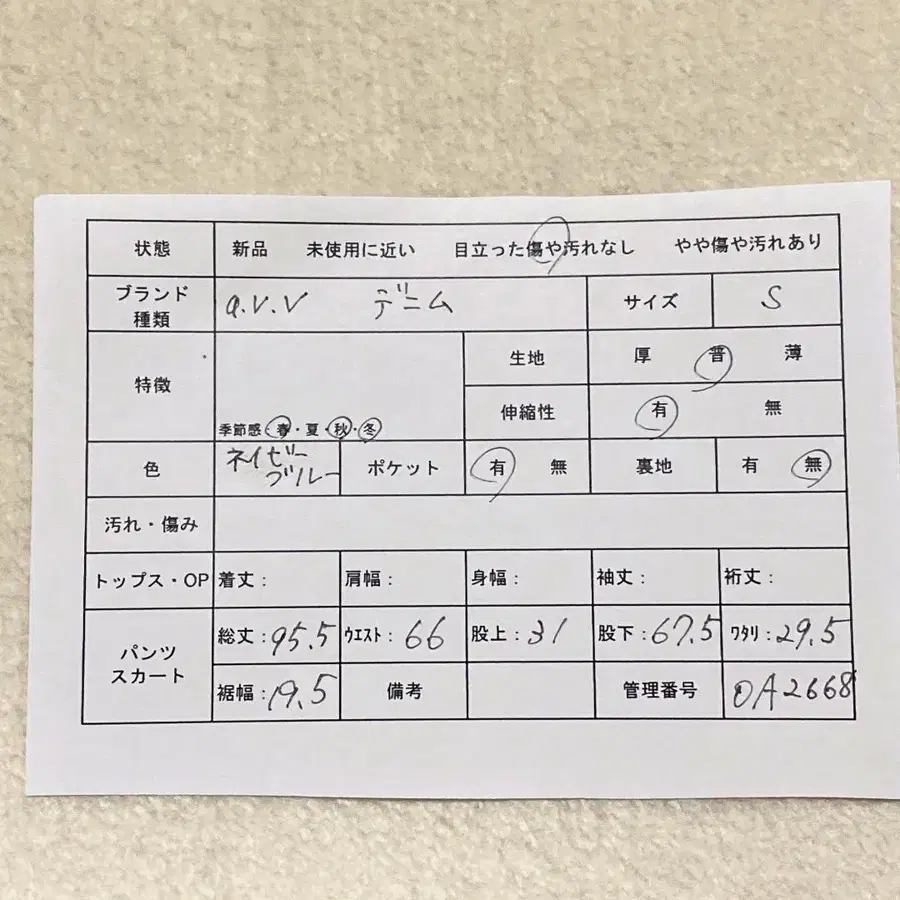 状態 新品 未使用に近い 目立った傷や汚れなし やや傷や汚れあり
ブランド 種類 a.v.v デニム サイズ S
特徴 生地 厚 普 薄
伸縮性 有 無
季節感・春・夏・秋・冬
色 ネイビーブルー ポケット 有 無 裏地 有 無
汚れ・傷み
トップス・OP 着丈： 肩幅： 身幅： 袖丈： 裄丈：
パンツ スカート 総丈：95.5 ｳｴｽﾄ：66 股上：31 股下：67.5 ﾜﾀﾘ：29.5
裾幅：19.5 備考 管理番号 OA2668